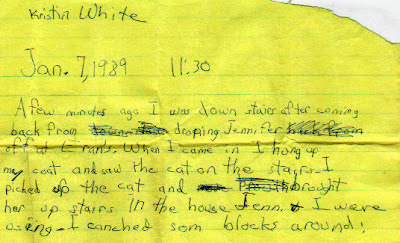 Kristin White
Jan. 7, 1989 11:30
A few minutes ago I was down stairs after coming
back from droping Jennifer
off at Grans. When I came in I hung up
my coat and saw the cat on the stairs. I
picked up the cat and brought
her up stairs. In the house Jenn. & I were
useing. I canched som blocks around!